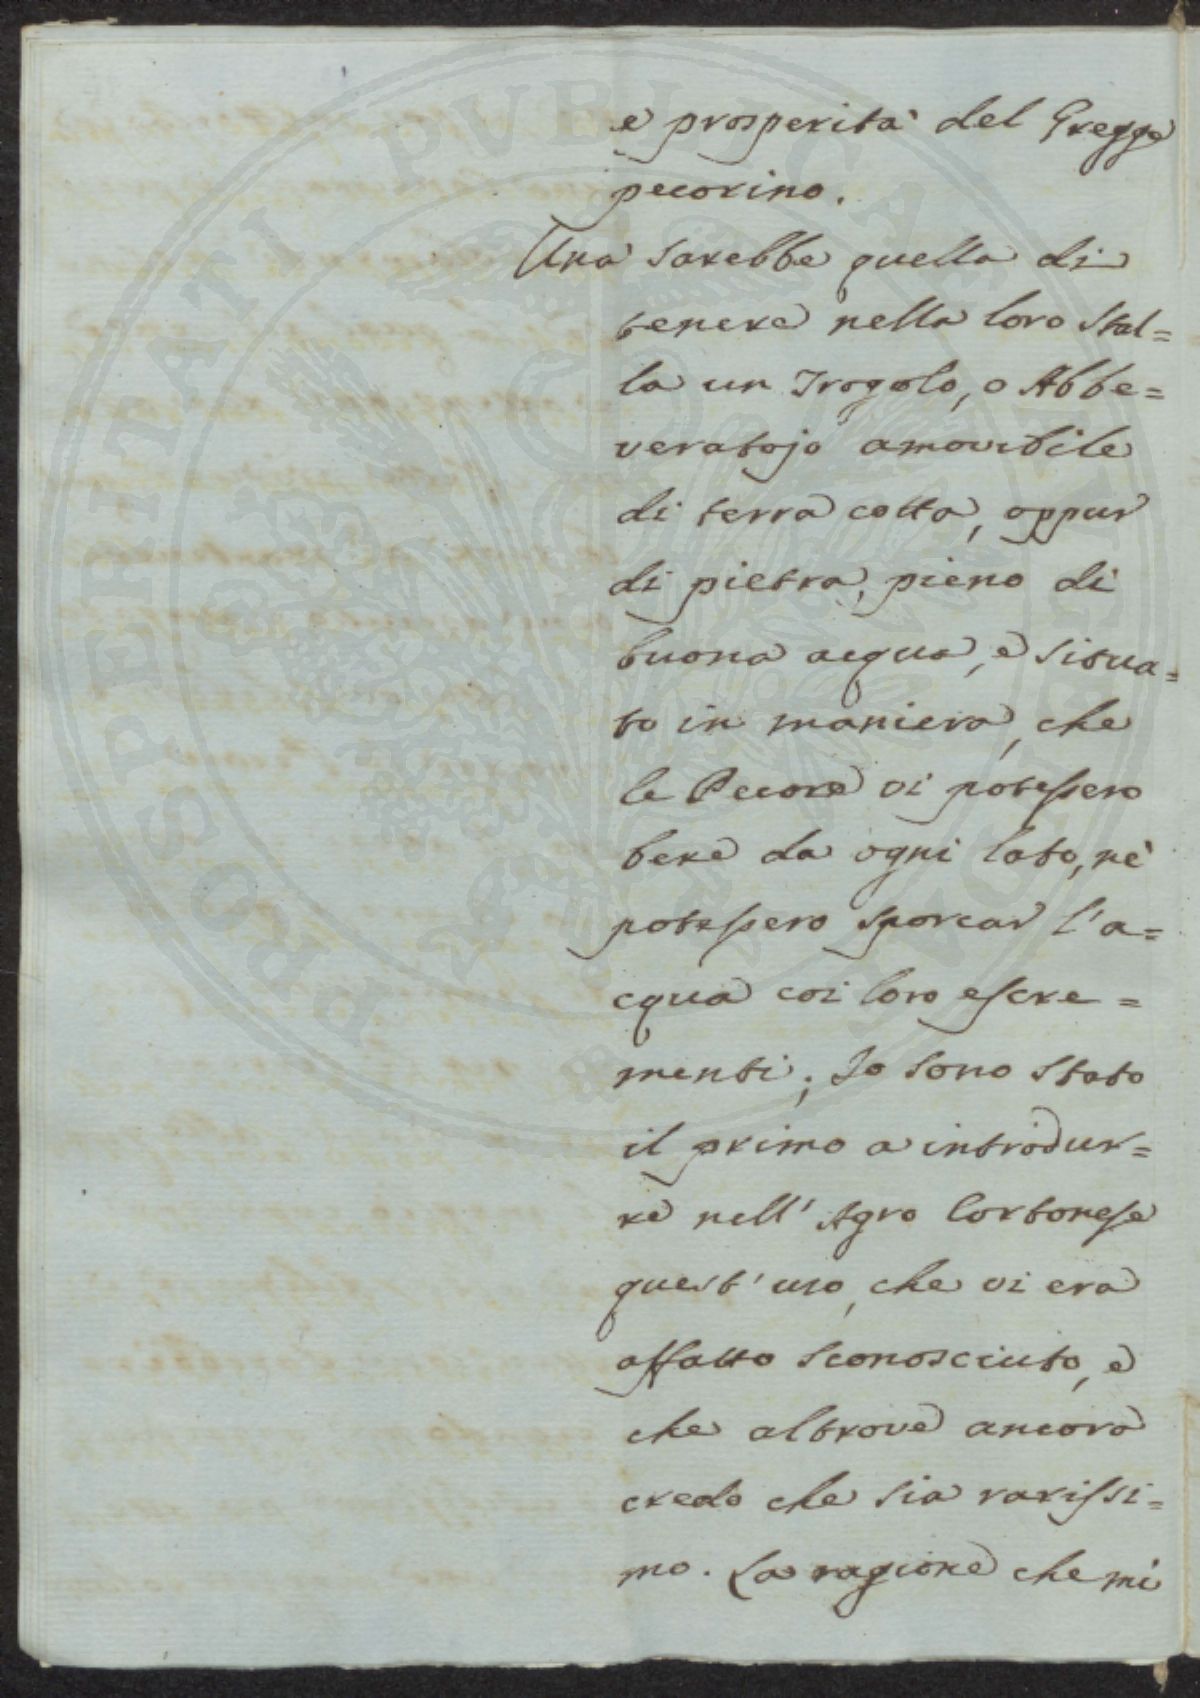 e prosperita' del Gregge
pecorino.
Una sarebbe quella di
tenere nella loro Stal=
la un Trogolo, o Abbe=
veratojo amovibile
di terra cotta, oppur
di pietra, pieno di
buona acqua, e situa=
to in maniera, che
le Pecore vi potessero
bere da ogni lato, nè
potessero sporcar l'a=
cqua coi loro escre=
menti; Io sono stato
il primo a introdur=
re nell' Agro Cortonese
quest' uso, che vi era
affatto sconosciuto, e
che altrove ancora
credo che sia rarissi=
mo. La ragione che mi
PROSPERITATI PVBLICAE AVGENDAE